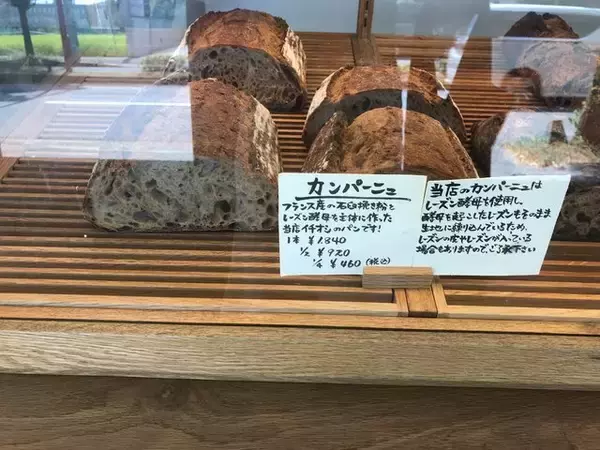 カンパーニュ
フランス産の石臼挽き粉と
レーズン酵母を主体に作った
当店イチオシのパンです!
1本 ¥1,840
1/2 ¥920
1/4 ¥460 (税込)
当店のカンパーニュは
レーズン酵母を使用し、
酵母を起こしたレーズンもそのまま
生地に練り込んでいるため、
レーズンの皮やレーズンが入っている
場合もありますので、ご了承下さい